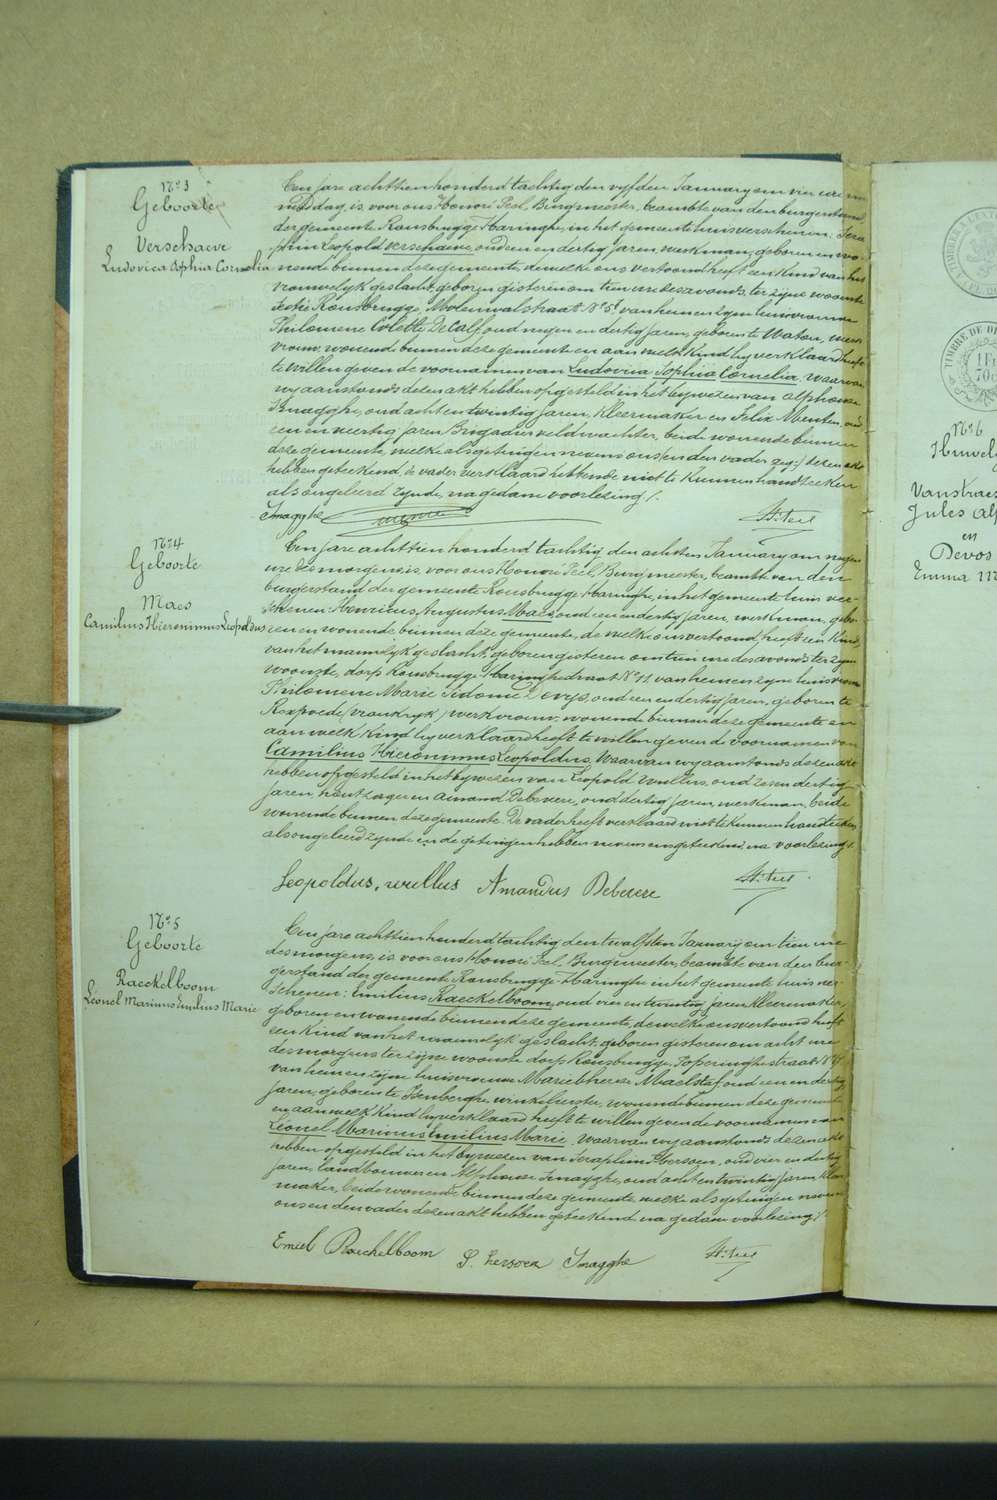 N° 3
Geboorte
Verschaeve
Ludovica Sophia Cornelia
Een jare achttien honderd tachtig den vyfden January om vier ure na
middag, is voor ons Honoré Peel, Burgmeester, beambte van den burgerstand
der gemeente Rousbrugge-Haringhe, in het gemeente huis verschenen: Sera
phin Leopold Verschaeve, oud een en dertig jaren, werkman, geboren en wo
nende binnen deze gemeente, dewelke ons vertoond heeft een kind van het
vrouwelyk geslacht, geboren gisteren om tien ure des avonds, ter zyne woonste
Rousbrugge, Molenwalstraat N° 58, van hem en zyne huisvrouw
Philomene Colette Decalf, oud negen en dertig jaren, geboren te Watou, werk
vrouw, wonende binnen deze gemeente en aan welk kind hy verklaard heeft
te willen geven de voornamen van Ludovica Sophia Cornelia, waarvan
wy aanstonds dezen akt hebben opgesteld in het bywezen van Alphonse
Smagghe, oud acht en twintig jaren, kleermaker en Felix Menten, oud
zeven en veertig jaren Brigadier veldwachter, beide wonende binnen
deze gemeente, welke als getuigen nevens ons (en den vader gez:) dezen akt
hebben geteekend, de vader verklaard hebbende niet te kunnen handteeken
als ongeleerd zynde, na gedane voorlezing /.
Smagghe
Hre Peel
N° 4
Geboorte
Maes
Camilius Hieronimus Leopoldus
Een jare achttien honderd tachtig den achsten January om negen
ure des morgens, is voor ons Honoré Peel, Burgmeester, beambte van den
burgerstand der gemeente Rousbrugge-Haringhe, in het gemeente huis ver-
schenen: Henricus Augustus Maes, oud een en dertig jaren, werkman, gebo-
ren en wonende binnen deze gemeente, de welke ons vertoond heeft een kind
van het mannelyk geslacht, geboren gisteren om tien ure des avonds ter zyne
woonste, dorp Rousbrugge, Haringhestraat N° 11, van hem en zyne huisvrouw
Philomene Marie Sidonie Devys, oud een en dertig jaren, geboren te
Rexpoede (Vrankryk) werkvrouw, wonende binnen deze gemeente en
aan welk kind hy verklaard heeft te willen geven de voornamen van
Camilius Hieronimus Leopoldus, Waarvan wy aanstonds dezen akt
hebben opgesteld in het bywezen van Leopold Wullus, oud zes en dertig
jaren, houtzager en Amand Debevere, oud dertig jaren, werkman, beide
wonende binnen deze gemeente. De vader heeft verklaard niet te kunnen handteeken
als ongeleerd zynde en de getuigen hebben nevens ons geteekend, na voorlezing /.
Leopoldus, wullus Amandus Debevere Hre Peel
N° 5
Geboorte
Raeckelboom
Leonel Marinus Emilius Marie
Een jare achttien honderd tachtig den twalfsten January om tien ure
des morgens, is voor ons Honoré Peel, Burgmeester, beambte van den bur-
gerstand der gemeente Rousbrugge-Haringhe in het gemeente huis ver-
schenen: Emilius Raeckelboom, oud vier en twintig jaren kleermaker,
geboren en wonende binnen deze gemeente, dewelke ons vertoond heeft
een kind van het mannelyk geslacht, geboren gisteren om acht ure
des morgens ter zyne woonste dorp Rousbrugge, Poperinghestraat N°
van hem en zyne huisvrouw Marie Therese Maelstaf oud een en dertig
jaren, geboren te Isenberghe, winkelierster, wonende binnen deze gemeente
en aan welk kind hy verklaard heeft te willen geven de voornamen van
Leonel Marinus Emilius Marie, waarvan wy aanstonds dezen akt
hebben opgesteld in het bywezen van Seraphin Hersoen, oud vier en dertig
jaren, landbouwer en Alphonse Smagghe, oud acht en twintig jaren, kleer
maker, beide wonende binnen deze gemeente, welke als getuigen nevens
ons en den vader dezen akt hebben geteekend na gedane voorlezing /.
Emiel Raeckelboom S. hersoen Smagghe Hre Peel
N° 6
Huwely
Vanstraes
Jules Alp
en
Devos
Emma M